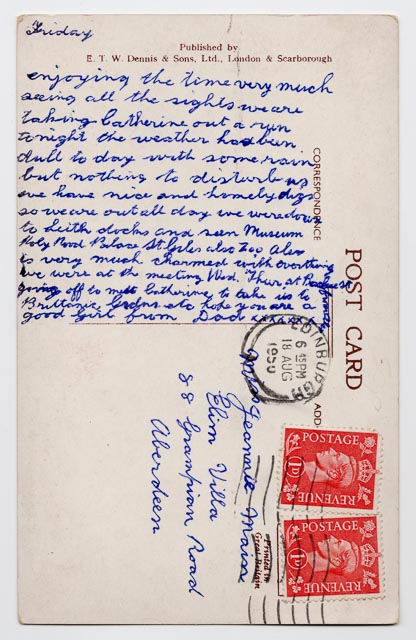 Friday
Published by
E. T. W. Dennis & Sons, Ltd., London & Scarborough
enjoying the time very much
seeing all the sights we are
taking Catherine out a run
tonight the weather has been
dull to day with some rain
but nothing to disturb us
we have nice and homely digs
so we are out all day we were down
to Leith docks and seen Museum
Holy Rood Palace St. Giles also Zoo Also
is very much charmed with everything
we were at the meeting Wed. Thur at
going off to meet Catherine to take us to
Brittania Gdns etc hope you are a
good girl from Dad xxxxxxx
CORRESPONDENCE
POST CARD
ADD
EDINBURGH
6 45PM
18 AUG
1950
Miss Jeannie
Elim Villa
88 Grampian Road
Aberdeen
Printed in
Great Britain
POSTAGE
1D
REVENUE
POSTAGE
1D
REVENUE